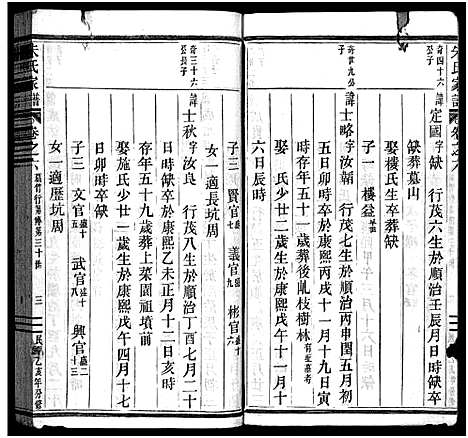 朱氏家譜
卷之六
奇四十六
公長子
諱
定國字缺 行茂六生於順治壬辰月日缺卒
缺葬墓山
娶樓氏生卒葬缺
子一 樓益
奇世九公
諱
士略字汝韓 行茂七生於順治丙申閏五月初
五日卯時卒於康熙丙戌十一月十九日寅
時存年五十一歲葬後亂枝樹林
娶 氏少廿二歲生於康熙戊午十一月十
六日辰時
子三 賢官七 義官九 彬官十
女一適長坑周
奇三十六
公長子
諱
士秋字汝良 行茂八生於順治丁酉七月二十
日時缺卒於康熙乙未正月十二日亥時
存年五十九歲葬上菜園祖墳前
娶施氏少廿一歲生於康熙戊午四月十七
日卯時卒缺
子三 文官五 武官十一 興官十三
女一適歷坑周
朱氏家譜
卷之六
三
民乙亥年分修